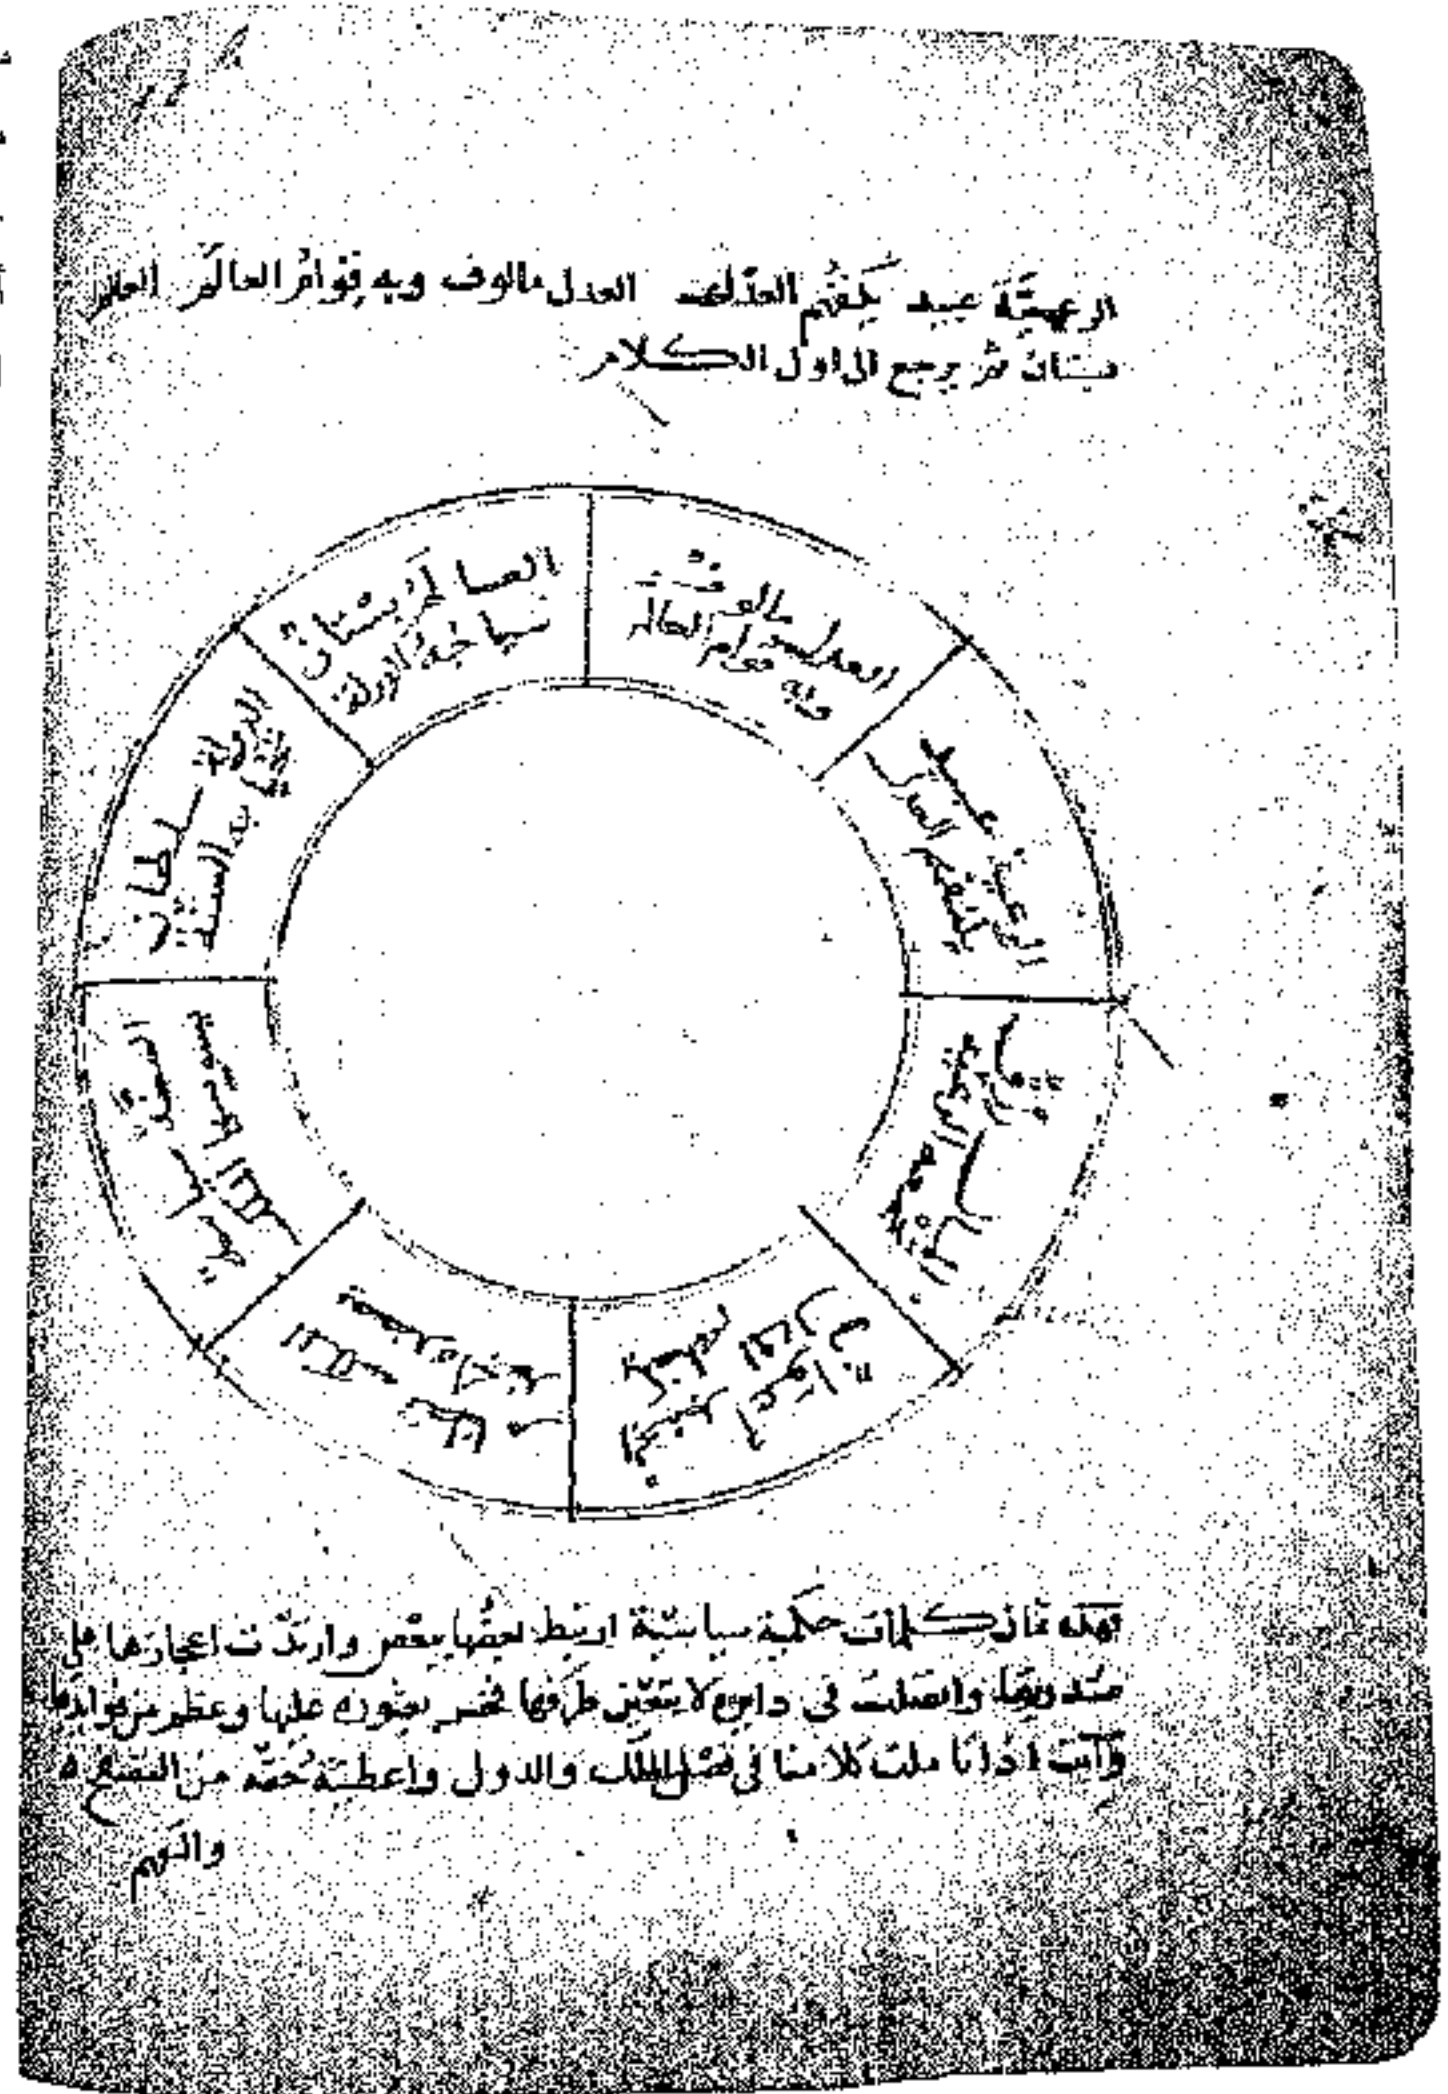 الرعية عبيد يكنفهم العدل العدل مالوف وبه قوام العالم العالم
بستان ثم يرجع الى اول الكلام
العالم بستان
سياجه الدولة
الدولة سلطان
تحيا به السنة
الملك
يعضده الجند
الجند اعوان
يكفلهم المال
المال رزق
تجمعه الرعية
الرعية عبيد
يكنفهم العدل
العدل مالوف
وبه قوام العالم
فهذه ثمان كلمات حكمية سياسية ارتبط بعضها ببعض وارتدت اعجازها على
صدورها واتصلت في دايرة لا يتعين طرفها فخر بعثوره عليها وعظم من فوايدها
وانت اذا تاملت كلامنا في فصل الملك والدول واعطيته حقه من التصفح
والتفهم